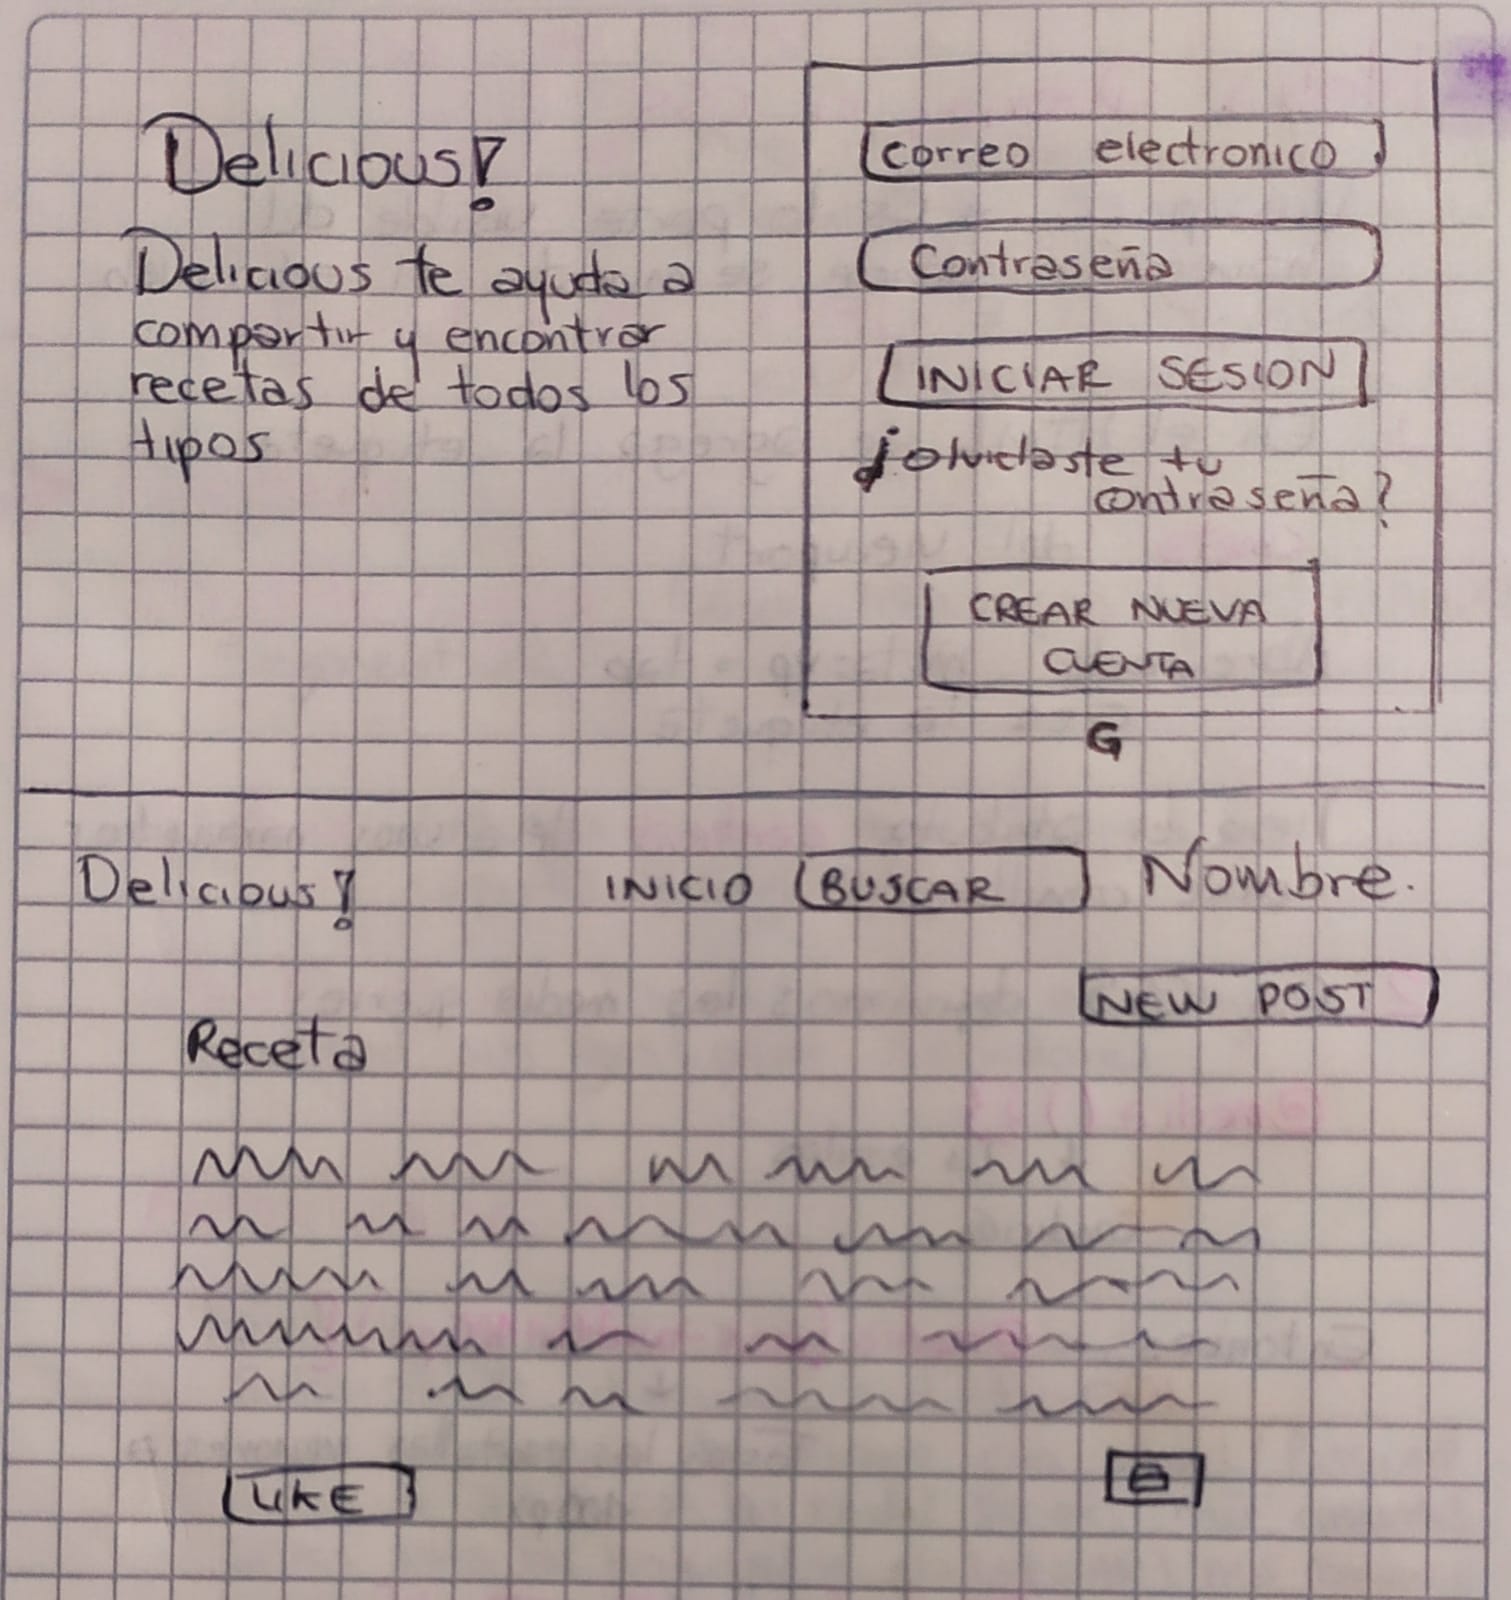 Delicious!
Delicious te ayuda a
compartir y encontrar
recetas de todos los
tipos
correo electronico
Contraseña
INICIAR SESION
¡olvidaste tu
contraseña?
CREAR NUEVA
CUENTA
G
Delicious!
INICIO BUSCAR Nombre.
NEW POST
Receta
LIKE